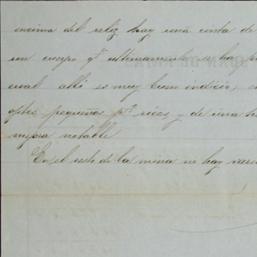 encima del reliz hay una cinta de
un cuerpo qe ultimamente se ha
cual alli es muy buen indicio,
pequeños pr. ricos y de una
mejora notable
En el resto de la mina no hay